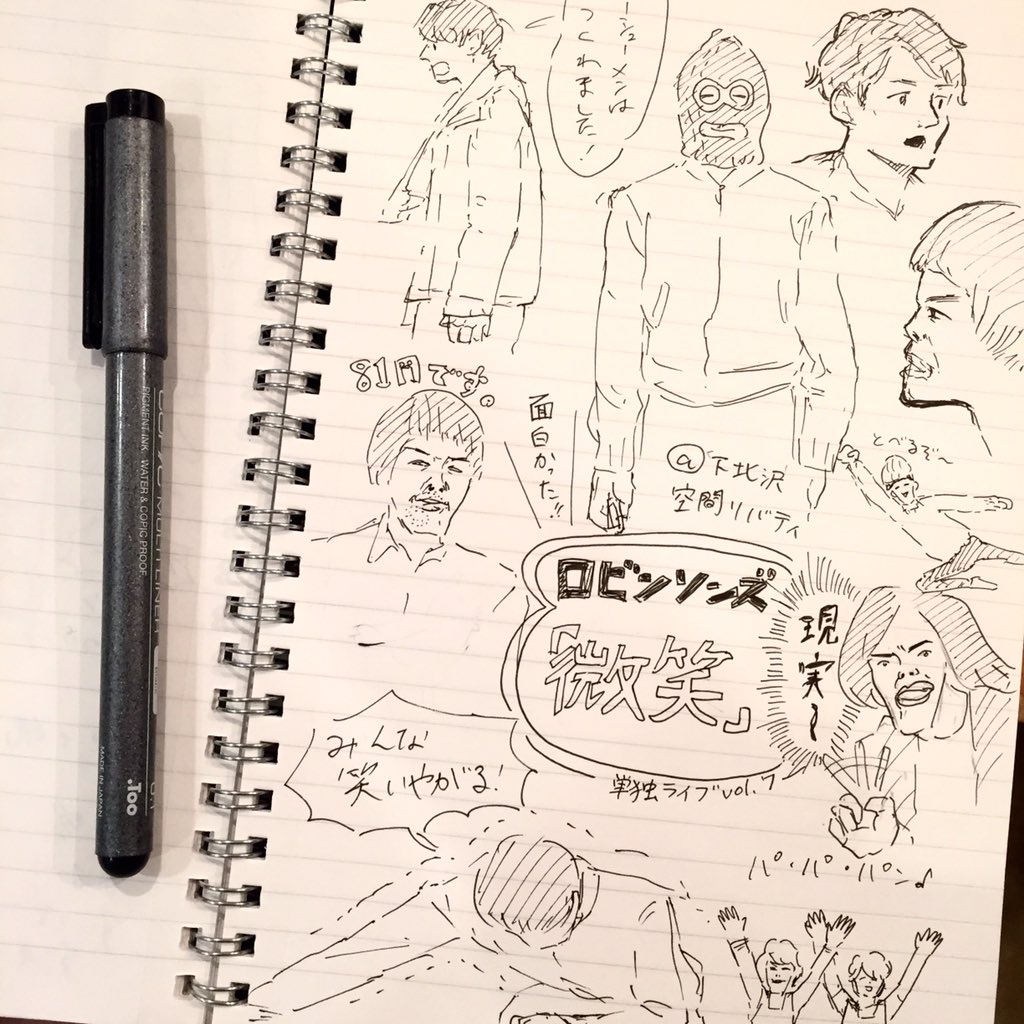 ーシューメンは
つくわれました!
81円です。
面白かった!!
@下北沢
空間リバティ
とべるぞ〜
ロビンソンズ
「微笑」
現実〜
単独ライブvol.7
みんな
笑いやがる!
パ・パ・パン♪
PIGMENT INK WATER & COPIC PROOF
.Too
MADE IN JAPAN